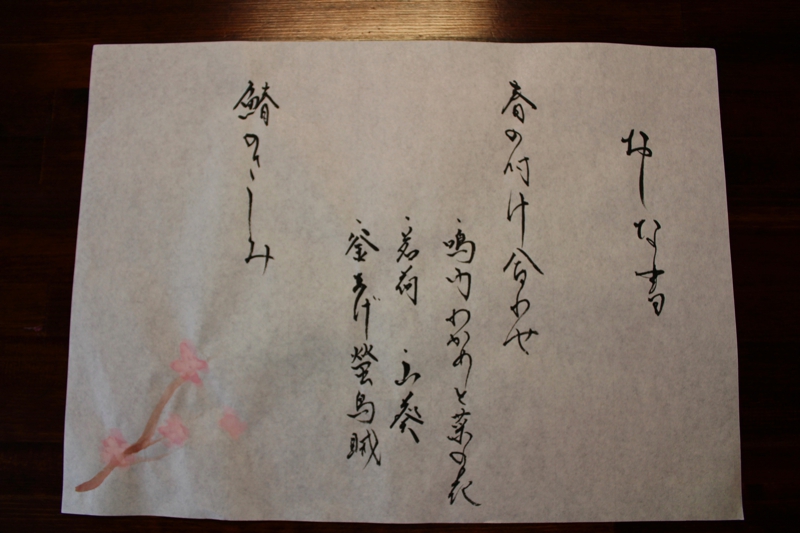 おしな書
春の付け合わせ
・鳴門わかめと菜の花
・茗荷 山葵
・釜あげ螢烏賊
鰆のさしみ